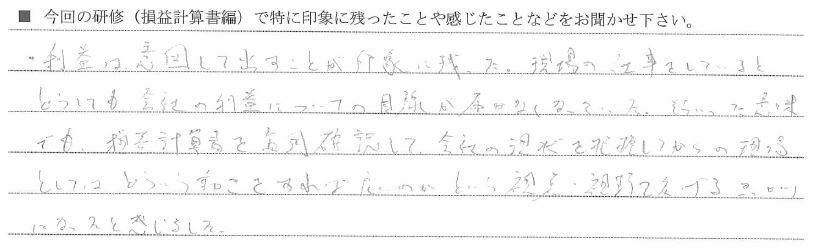 ■ 今回の研修（損益計算書編）で特に印象に残ったことや感じたことなどをお聞かせ下さい。
・利益は意図して出すことが印象に残った。現場の仕事をしていると
どうしても会社の利益についての目線が届かなくなっていた。そういった意味
でも、損益計算書を毎月確認して、会社の現状を把握してからの現場
としてはどういう動きをすれば良いのかという視点・視野を広げるきっかけ
になったと感じました。